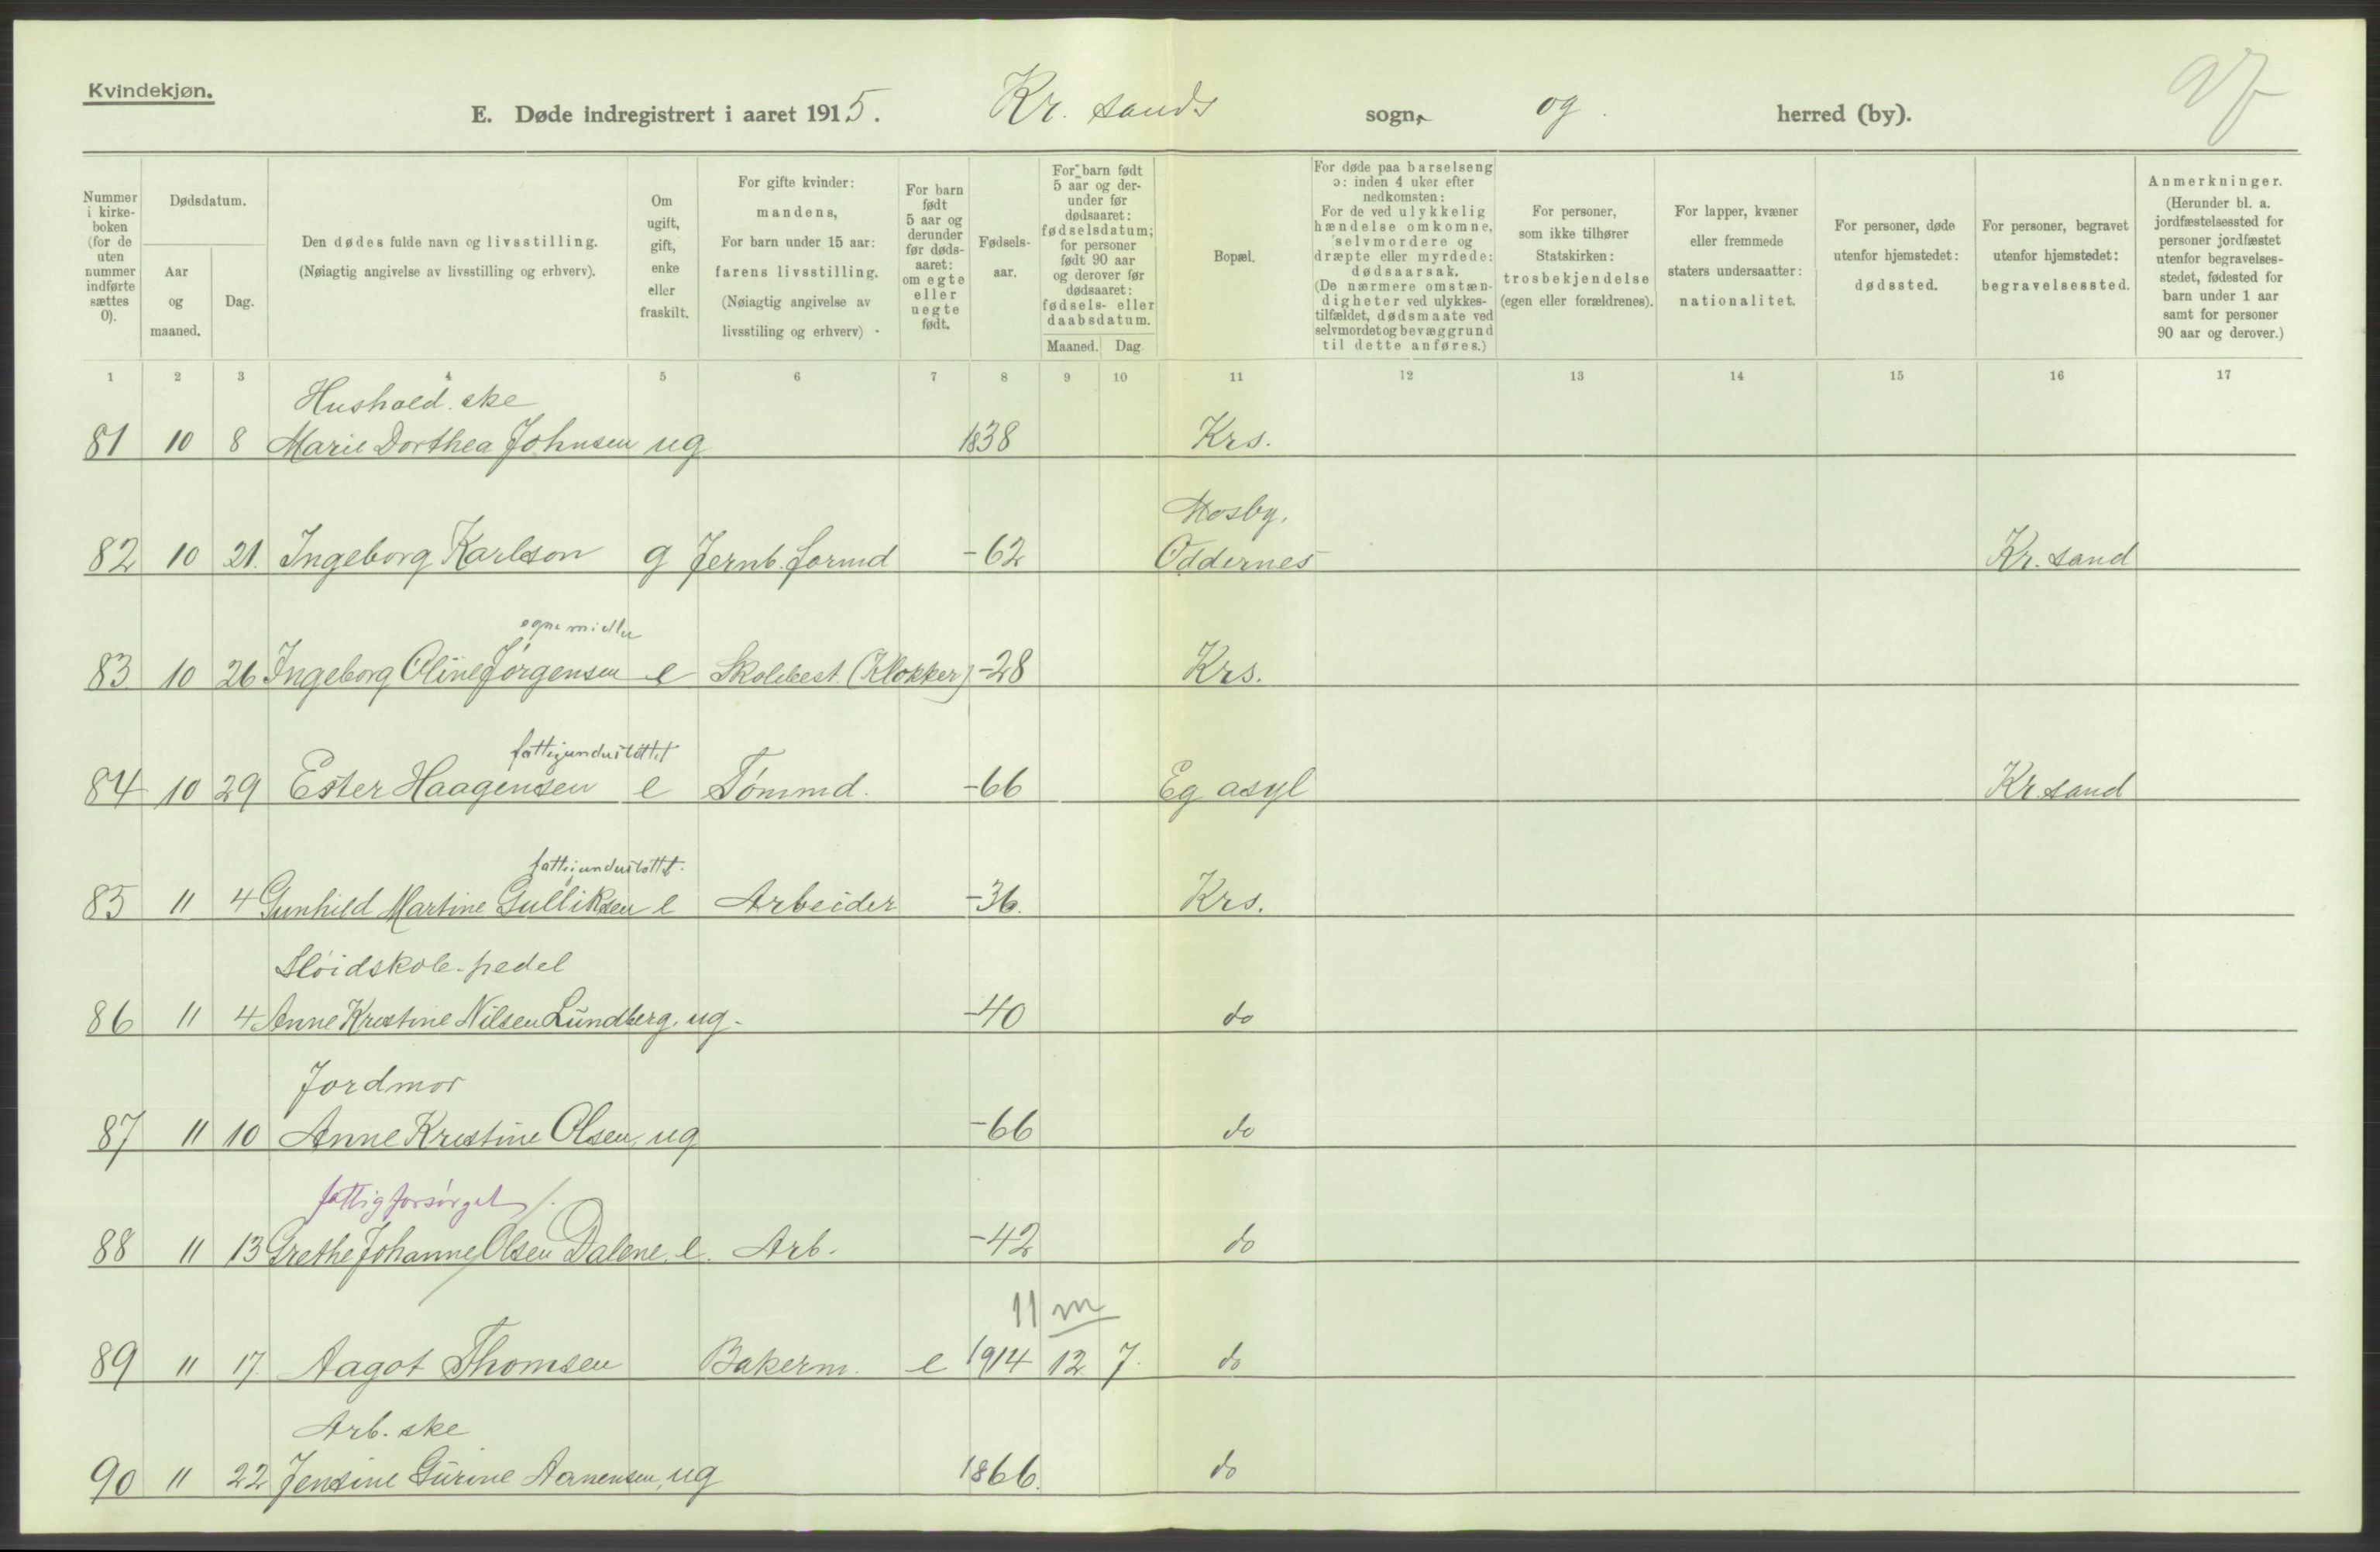 Kvindekjøn.
E. Døde indregistrert i aaret 1915. Kr. sands sogn, og herred (by).
Nummer i kirke- boken (for de uten nummer indførte sættes 0).
Dødsdatum.
Aar og maaned.
Dag.
Den dødes fulde navn og livsstilling.
(Nøiagtig angivelse av livsstilling og erhverv).
Om ugift, gift, enke eller fraskilt.
For gifte kvinder: mandens,
For barn under 15 aar: farens livsstilling.
(Nøiagtig angivelse av livsstiling og erhverv)
For barn født 5 aar og derunder før døds- aaret: om egte eller uegte født.
Fødsels- aar.
For barn født 5 aar og der- under før dødsaaret: fødselsdatum; for personer født 90 aar og derover før dødsaaret: fødsels- eller daabsdatum.
Maaned. Dag.
Bopæl.
For døde paa barselseng ɔ: inden 4 uker efter nedkomsten:
For de ved ulykkelig hændelse omkomne, selvmordere og dræpte eller myrdede: dødsaarsak.
(De nærmere omstæn- digheter ved ulykkes- tilfældet, dødsmaate ved selvmordet og bevæggrund til dette anføres.)
For personer, som ikke tilhører Statskirken: trosbekjendelse (egen eller forældrenes).
For lapper, kvæner eller fremmede staters undersaatter: nationalitet.
For personer, døde utenfor hjemstedet: dødssted.
For personer, begravet utenfor hjemstedet: begravelsessted.
Anmerkninger.
(Herunder bl. a. jordfæstelsessted for personer jordfæstet utenfor begravelses- stedet, fødested for barn under 1 aar samt for personer 90 aar og derover.)
1 2 3 4 5 6 7 8 9 10 11 12 13 14 15 16 17
Hushold.ske
81 10 8 Marie Dorthea Johnsen ug 1838 Krs.
Mosby,
82 10 21. Ingeborg Karlson g Jernb.formd -62 Oddernes Kr. sand
egne midler
83 10 26 Ingeborg Oline Jørgensen e Skolebest. (Klokker) -28 Krs.
fattigunderstøttet
84 10 29 Ester Haagensen e Tømmd. -66 Eg asyl Kr. sand
fattigunderstøttet.
85 11 4 Gunhild Martine Gulliksen e Arbeider -36. Krs.
Sløidskole-pedel
86 11 4 Anne Kristine Nilsen Lundberg. ug. -40 do
Jordmor
87 11 10 Anne Kristine Olsen, ug -66 do
fattigforsørget /.
88 11 13 Grethe Johanne Olsen Dalene. e. Arb. -42 do
11 m
89 11 17. Aagot Thomsen Bakerm. e 1914 12 7. do
Arb.ske
90 11 22 Jensine Gurine Aanensen, ug 1866. do